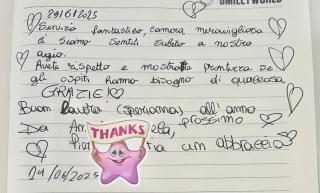 SMILEYWORLD
29/6/2025
Servizio fantastico, camera meravigliosa
ci siamo sentiti subito a nostro
agio.
Avete rispetto e mostrate prontezza se
gli ospiti hanno bisogno di qualcosa
GRAZIE!
Buon lavoro (speriamo) all'anno
prossimo
Da An
ela,
THANKS
Pier
un abbraccio
29/06/2025